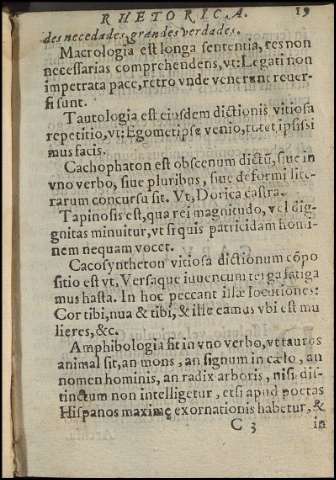 RHETORICA. 19
des necedades, grandes verdades.
Macrologia est longa sententia, res non
necessarias comprehendens, vt: Legati non
impetrata pace, retro vnde venerant reuer-
si sunt.
Tautologia est eiusdem dictionis vitiosa
repetitio, vt: Egometipse venio, tutet, ipsissi
mus facis.
Cachophaton est obscenum dictũ, siue in
vno verbo, siue pluribus, siue deformi lite-
rarum concursu sit. Vt, Dorica castra.
Tapinosis est, qua rei magnitudo, vel dig-
gnitas minuitur, vt si quis patricidam homi-
nem nequam vocet.
Cacosyntheton vitiosa dictionum cõpo
sitio est vt, Versaque iuuencum terga fatiga
mus hasta. In hoc peccant illæ locutiones:
Cor tibi, nua & tibi, & ille eamus vbi est mu
lieres, &c.
Amphibologia sit in vno verbo, vt tauros
animal sit, an mons, an signum in cælo, an
nomen hominis, an radix arboris, nisi dis-
tinctum non intelligetur, etsi apud poetas
Hispanos maximę exornationis habetur, &
C 3 in